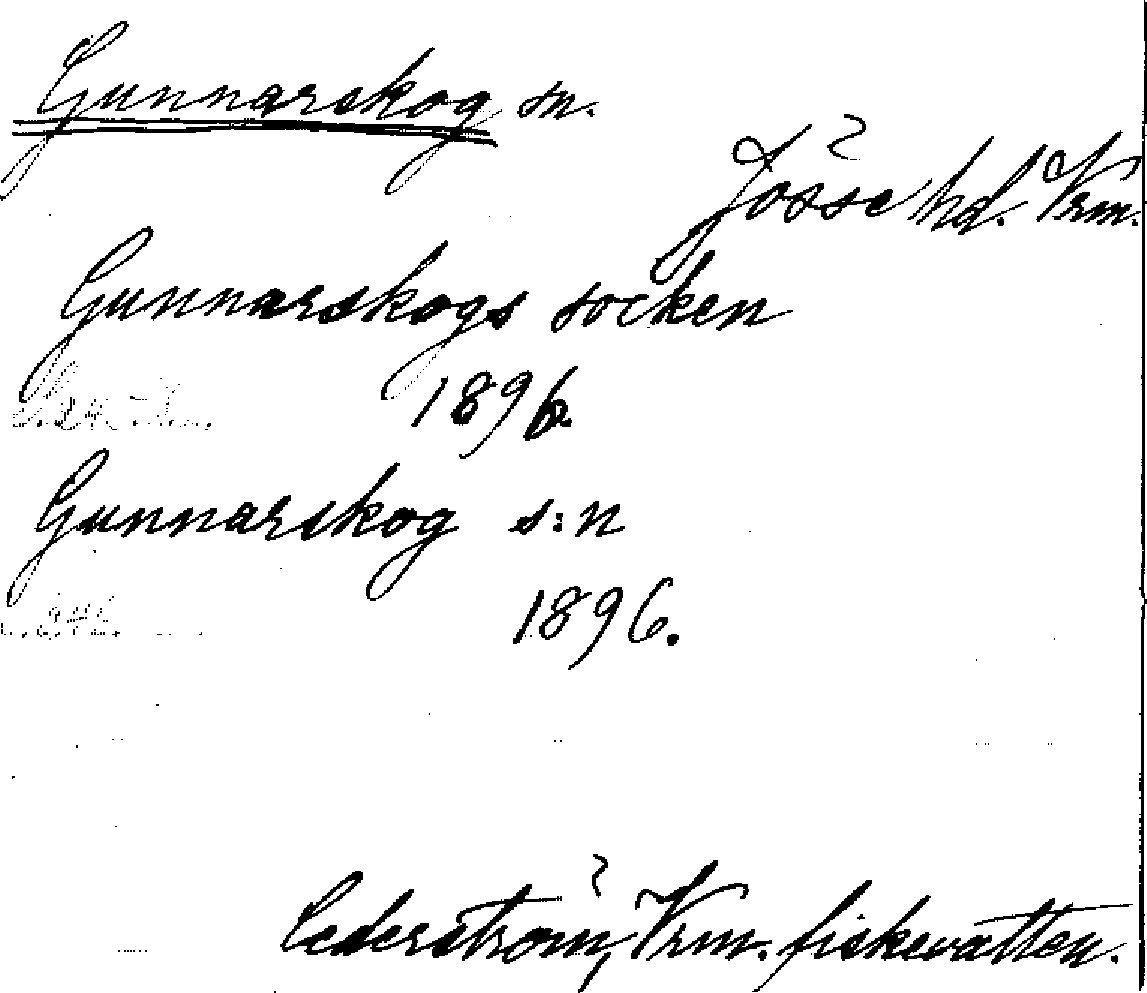 Gunnarskog sn.
Jösse hd. Vrm.
Gunnarskogs socken
1896.
Gunnarskog s:n
1896.
Cederström, Vrm. fiskevatten.